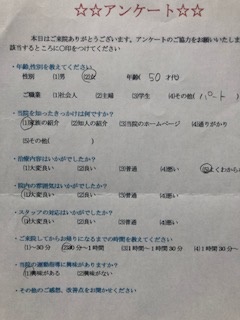 ☆☆アンケート☆☆
本日はご来院ありがとうございます。アンケートのご協力をお願いします
該当するところに〇印をつけてください
・年齢,性別を教えてください
性別 (1)男 (2)女 年齢( 50 才代)
ご職業 (1)社会人 (2)主婦 (3)学生 (4)その他( パート
・当院を知ったきっかけは何ですか?
(1)家族の紹介 (2)知人の紹介 (3)当院のホームページ (4)通りがかり
(5)その他( )
・治療内容はいかがでしたか?
(1)大変良い (2)良い (3)普通 (4)悪い (5)よくわから
・院内の雰囲気はいかがでしたか?
(1)大変良い (2)良い (3)普通 (4)悪い
・スタッフの対応はいかがでしたか?
(1)大変良い (2)良い (3)普通 (4)悪い
・ご来院してからお帰りになるまでの時間を教えてください
(1)~30分 (2)30分~1時間 (3)1時間~1時間30分 (4)1時間30分~
・当院の運動指導に興味がありますか?
(1)興味がある (2)興味がない
・その他のご感想、改善点をお聞かせください